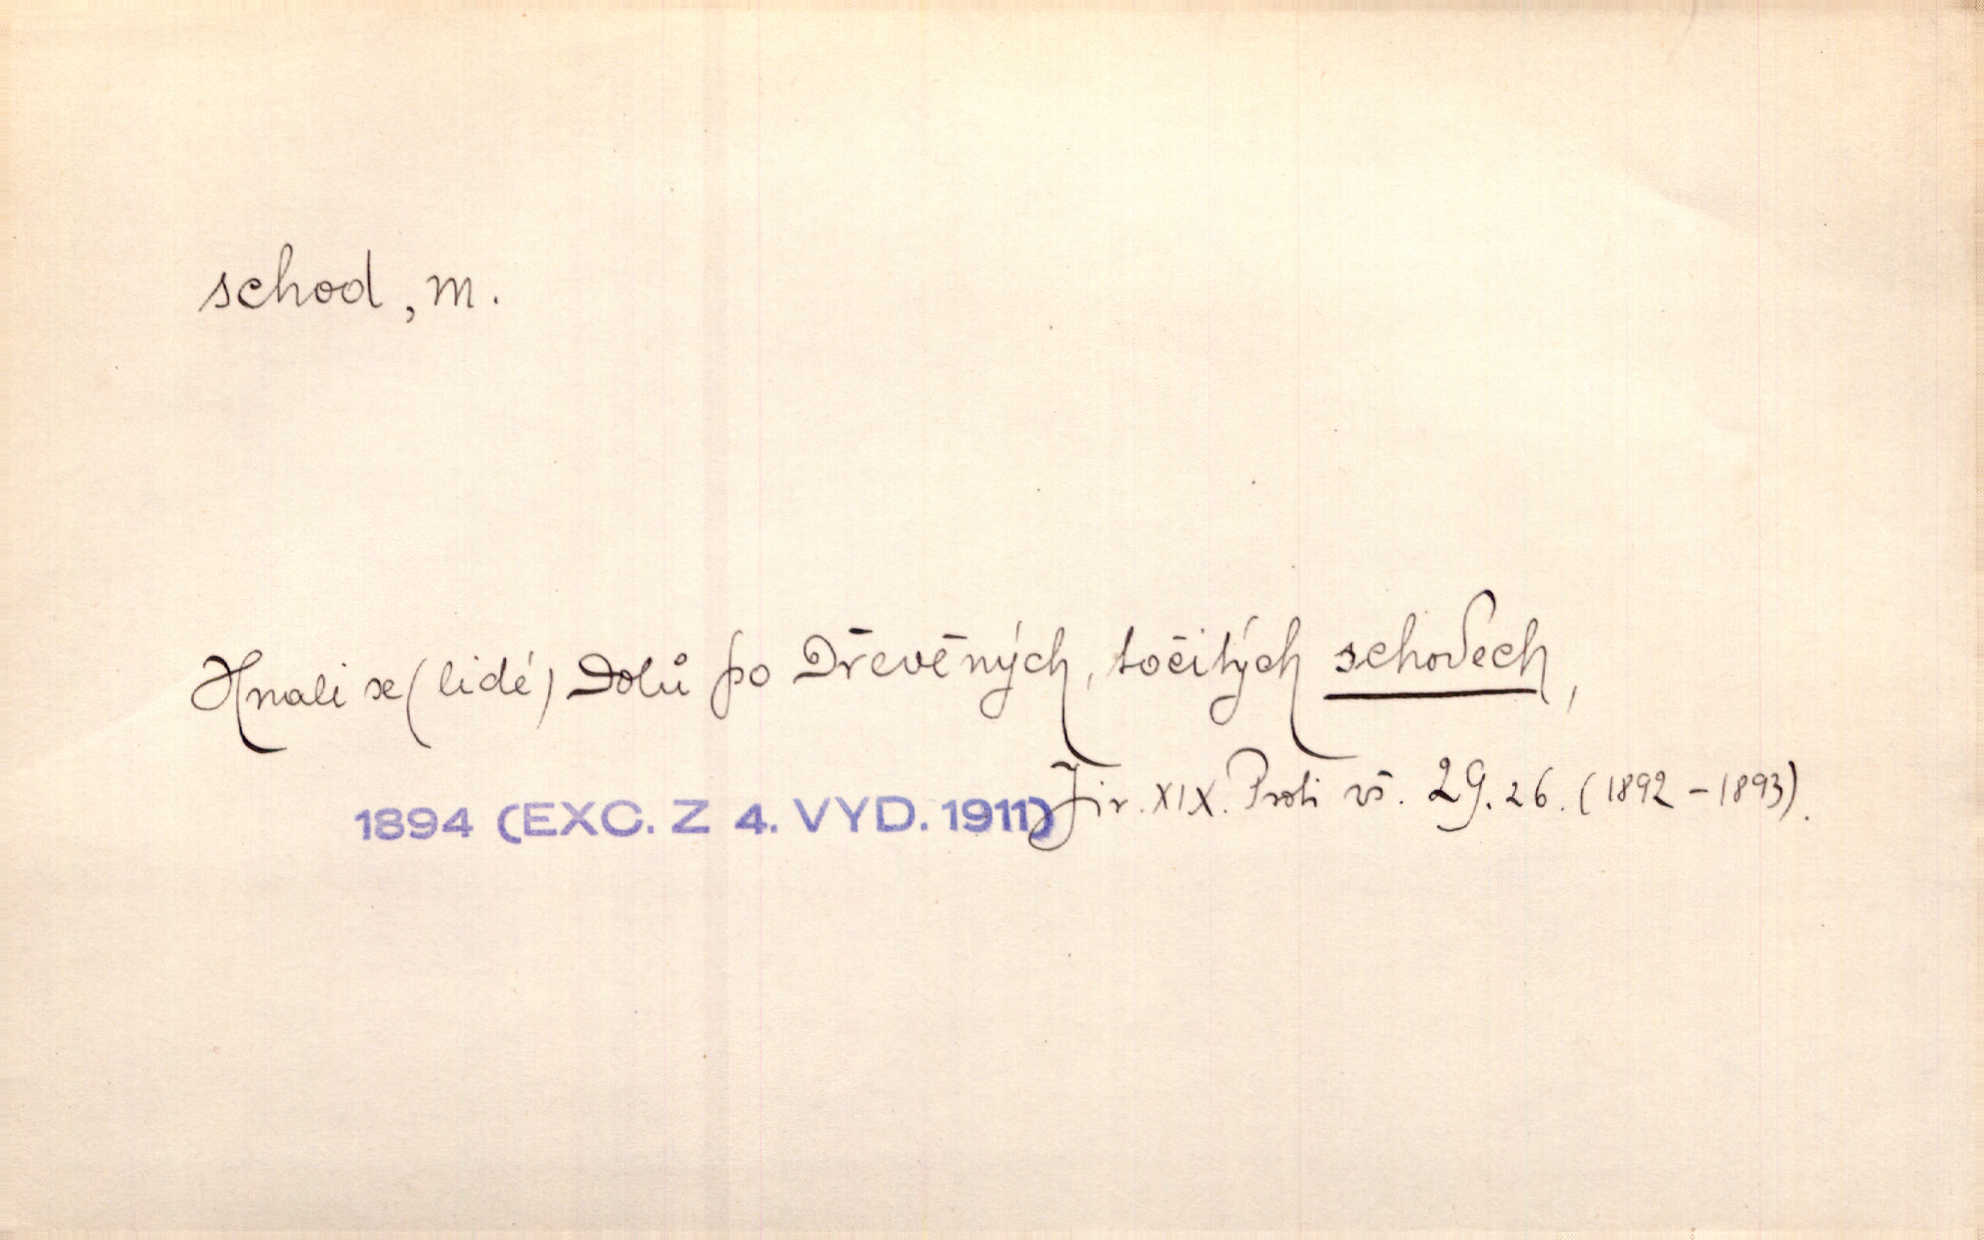 schod, m.
Hnali se (lidé) dolů po dřevěných, točitých schodech,
1894 (EXC. Z 4. VYD. 1911) Jir. XIX. Proti vš. 29. 26. (1892-1893).